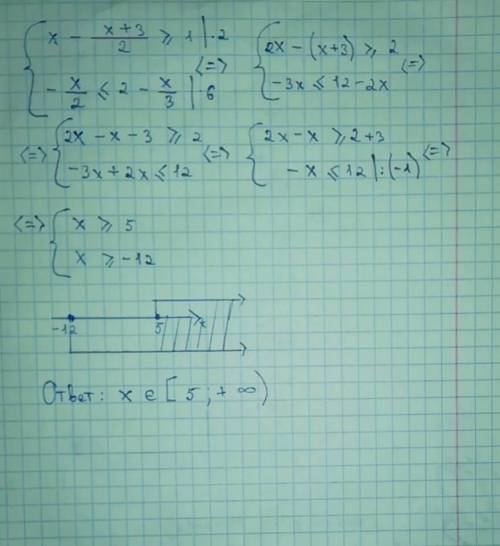 { x - (x+3)/2 ⩾ 1 | ·2
{ - x/2 ⩽ 2 - x/3 | ·6
<=>
{ 2x - (x+3) ⩾ 2
{ -3x ⩽ 12 - 2x
<=>
<=> { 2x - x - 3 ⩾ 2
{ -3x + 2x ⩽ 12
<=>
{ 2x - x ⩾ 2+3
{ -x ⩽ 12 | :(-1)
<=>
<=> { x ⩾ 5
{ x ⩾ -12
-12 5 x
Ответ: x ∈ [ 5 ; + ∞ )